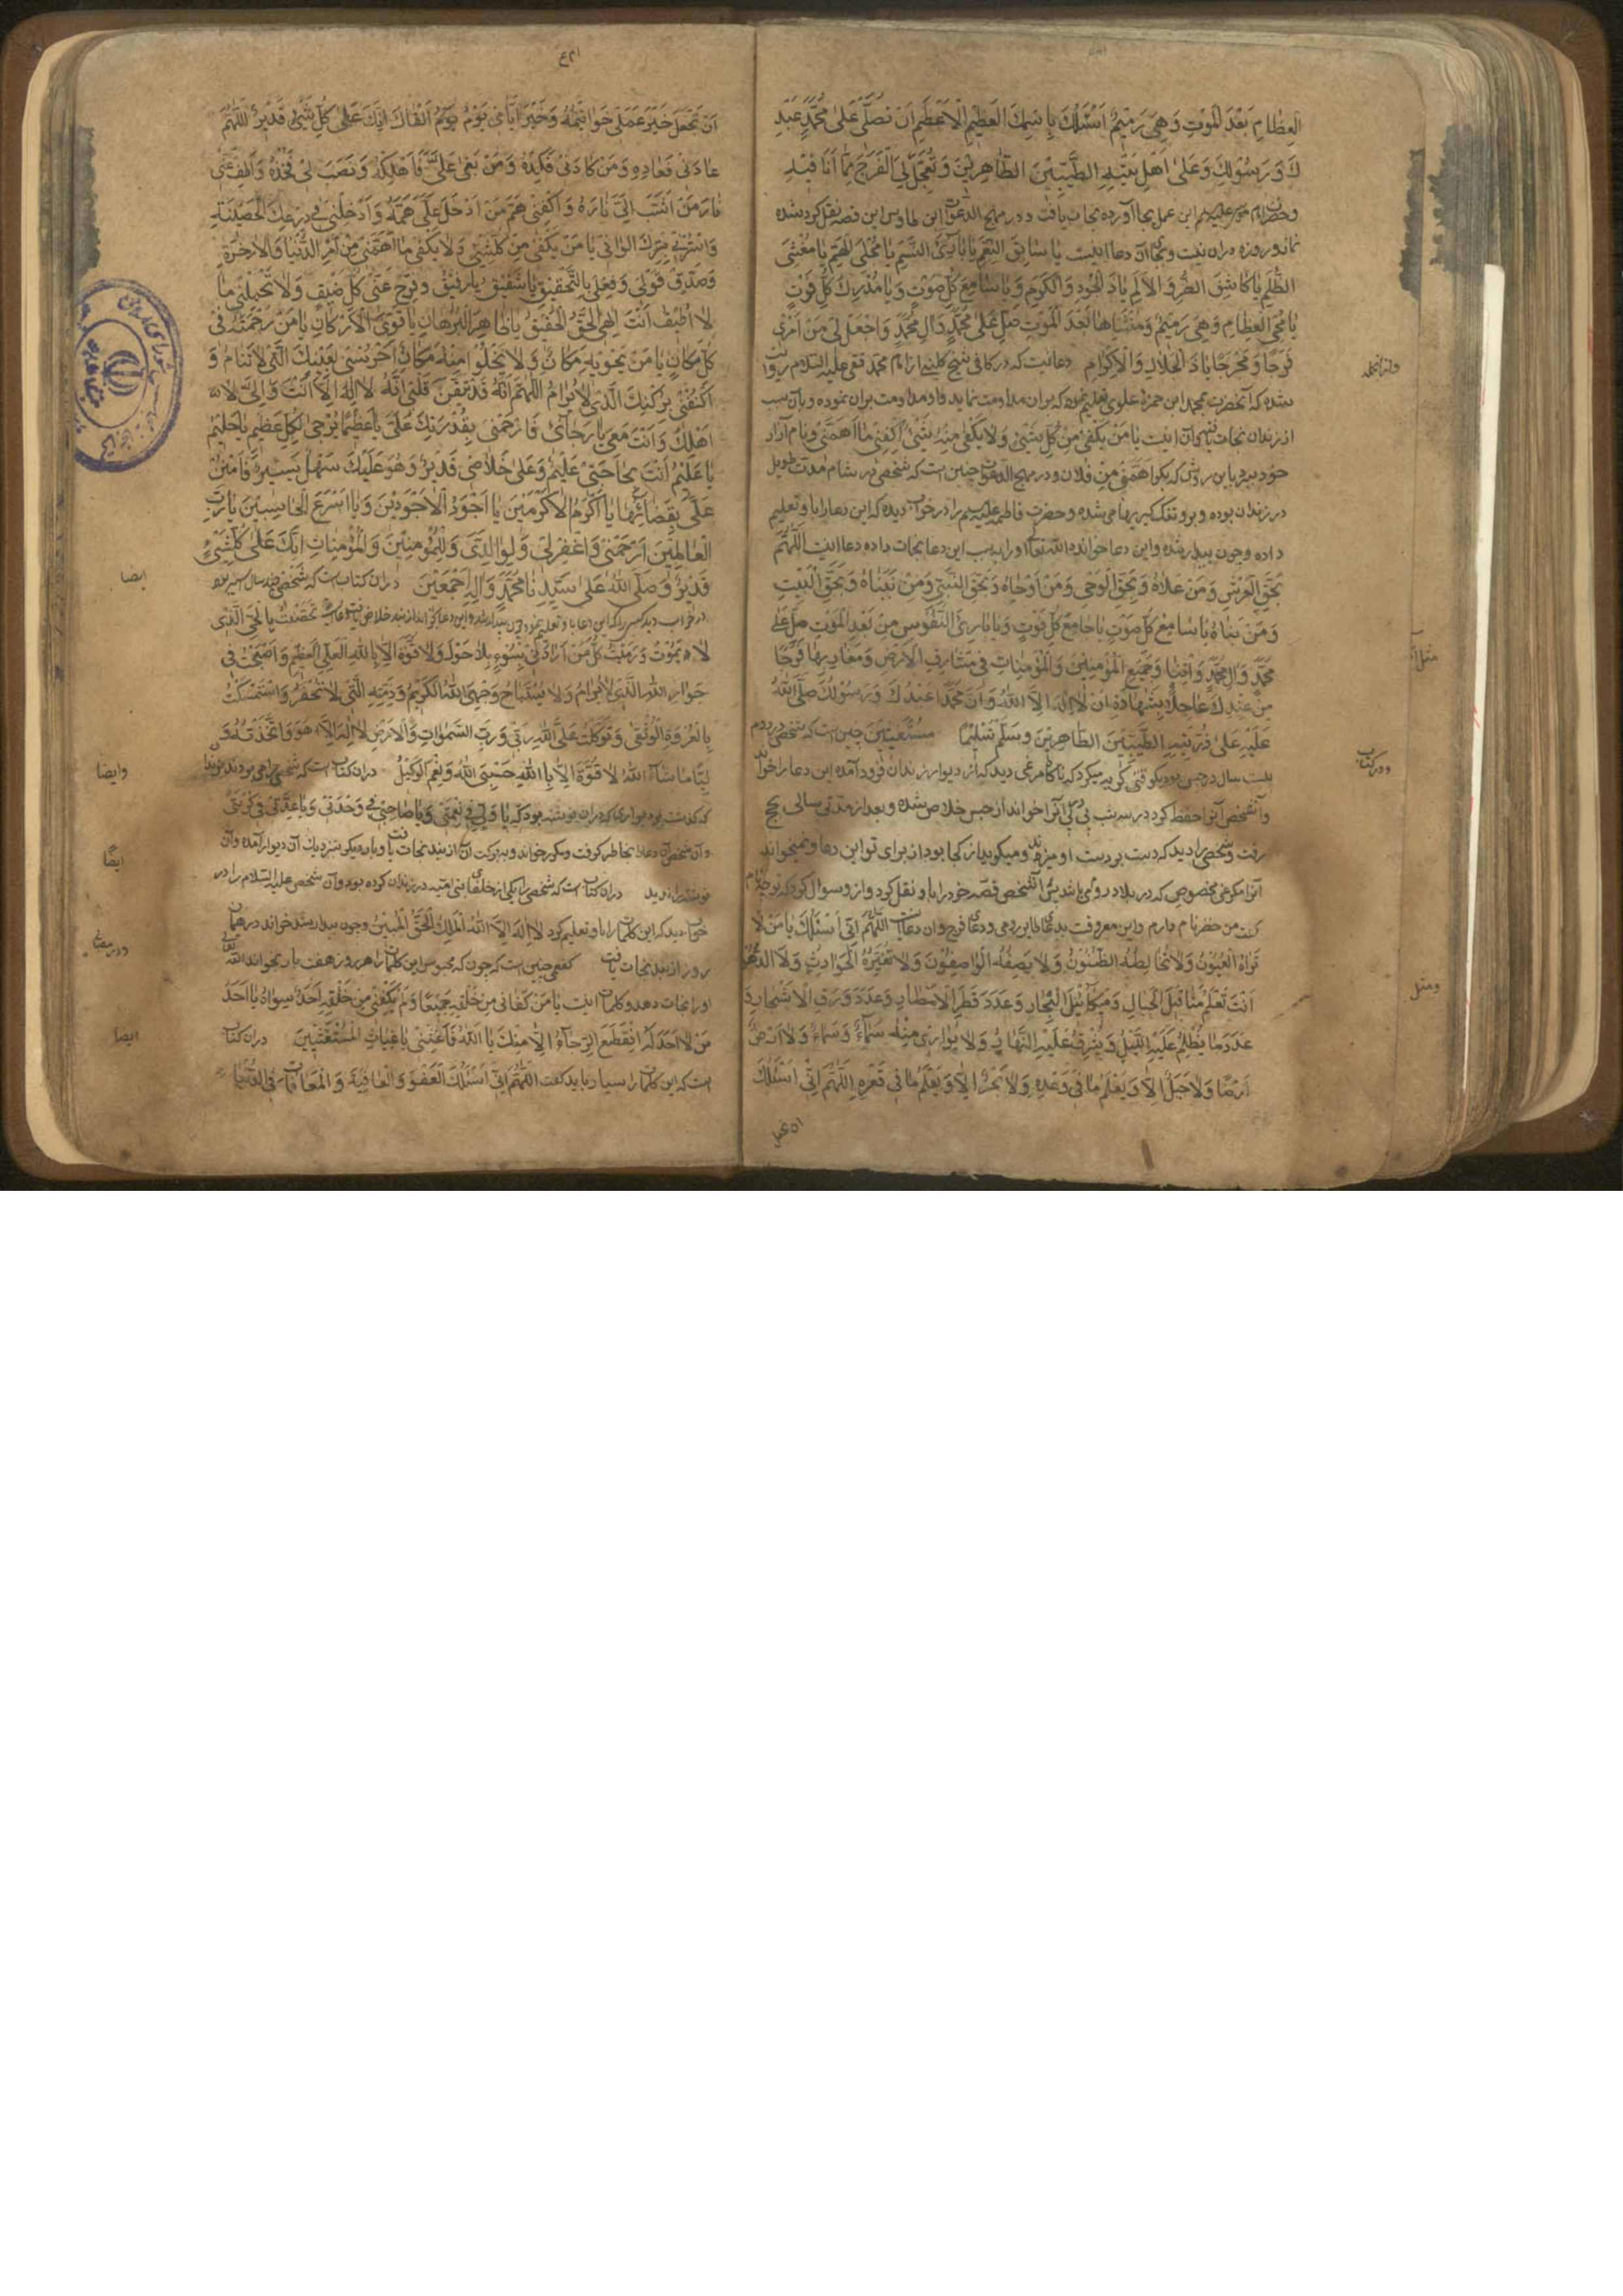 العِظَامِ بَعْدَ الْمَوْتِ وَهِيَ رَمِيمٌ اَسْئَلُكَ بِاسْمِكَ العَظِيمِ الْاَعْظَمِ اَنْ تُصَلِّيَ عَلىٰ مُحَمَّدٍ عَبْدِ
كَ وَرَسُولِكَ وَعَلىٰ اَهْلِ بَيْتِهِ الطَّيِّبِينَ الطَّاهِرِينَ وَتُعَجِّلَ لِيَ الْفَرَجَ مِمَّا اَنَا فِيهِ
این عمل بجا آورده نجات یافت و در مهج الدعوات ابن طاوس این قصه نقل کرده شده
نماز و روزه در آن نیست و بجای آن دعا اینست یا سابِقَ النِّعَمِ یا بارِئَ النَّسَمِ یا مُجَلِّیَ الهِمَمِ یا مُغْشِیَ
الظُّلَمِ يَا كَاشِفَ الضُّرِّ وَالْاَلَمِ يَا ذَا الْجُودِ وَالْكَرَمِ وَيَا سَامِعَ كُلِّ صَوْتٍ وَيَا مُدْرِكَ كُلِّ فَوْتٍ
يَا مُحْيِيَ الْعِظَامِ وَهِيَ رَمِيمٌ وَمُنْشِئَهَا بَعْدَ الْمَوْتِ صَلِّ عَلىٰ مُحَمَّدٍ وَآلِ مُحَمَّدٍ وَاجْعَلْ لِي مِنْ اَمْرِي
فَرَجًا وَمَخْرَجًا يَا ذَا الْجَلَالِ وَالْاِكْرَامِ دعائیست که در کافی شیخ کلینی از امام محمد تقی علیه السلام روایت
شده که آنحضرت بمحمد ابن حمزهٔ علوی تعلیم نموده که بر آن مداومت نماید و او مداومت بر آن نموده و بآن سبب
از زندان نجات یافته و آن اینست يَا مَنْ يَكْفِي مِنْ كُلِّ شَيْءٍ وَلَا يَكْفِي مِنْهُ شَيْءٌ اِكْفِنِي مَا اَهَمَّنِي و نام آزار
و در مهج الدعوات چنین است که شخصی در شام مدت طویل
در زندان بوده و حضرت فاطمه را در خواب دیده که این دعا را باو تعلیم
داده و چون بیدار شده و این دعا خوانده الله تعالی او را بسبب این دعا نجات داده دعا اینست اَللّٰهُمَّ
بِحَقِّ الْعَرْشِ وَمَنْ عَلَاهُ وَبِحَقِّ الْوَحْيِ وَمَنْ اَوْحَاهُ وَبِحَقِّ النَّبِيِّ وَمَنْ نَبَّاهُ وَبِحَقِّ الْبَيْتِ
وَمَنْ بَنَاهُ يَا سَامِعَ كُلِّ صَوْتٍ يَا جَامِعَ كُلِّ فَوْتٍ وَيَا بَارِئَ النُّفُوسِ مِنْ بَعْدِ الْمَوْتِ صَلِّ عَلىٰ
مُحَمَّدٍ وَآلِ مُحَمَّدٍ وَآتِنَا وَجَمِيعَ الْمُؤْمِنِينَ وَالْمُؤْمِنَاتِ فِي مَشَارِقِ الْاَرْضِ وَمَغَارِبِهَا فَرَجًا
مِنْ عِنْدِكَ عَاجِلًا بِشَهَادَةِ اَنْ لَا اِلٰهَ اِلَّا اللهُ وَاَنَّ مُحَمَّدًا عَبْدُكَ وَرَسُولُكَ صَلَّى اللهُ
عَلَيْهِ وَعَلىٰ ذُرِّيَّتِهِ الطَّيِّبِينَ الطَّاهِرِينَ وَسَلَّمَ تَسْلِيمًا چنین است که شخصی
بیست سال در حبس بود وقتی گریه میکرد که ناگاه مرغی دید که از دیوار زندان فرود آمده این دعا را خواند
و آن شخص آنرا حفظ کرد در سه شب پی در پی آنرا خواند از حبس خلاص شده و بعد از مدتی سالی بحج
رفت و شخصی را دید که دست بر دست او میزند و میگوید از کجا بود از برای تو این دعا و نمیخواند
آنرا مگر مرغی مخصوص که در بلاد روم میباشد پس آنشخص قصهٔ خود را باو نقل کرد و از او سوال کرد که تو چه نام
گفت من خضر نام دارم اَللّٰهُمَّ اِنِّي اَسْئَلُكَ يَا مَنْ لَا
تَرَاهُ الْعُيُونُ وَلَا تُخَالِطُهُ الظُّنُونُ وَلَا يَصِفُهُ الْوَاصِفُونَ وَلَا تُغَيِّرُهُ الْحَوَادِثُ وَلَا الدُّهُورُ
اَنْتَ تَعْلَمُ مَثَاقِيلَ الْجِبَالِ وَمَكَائِيلَ الْبِحَارِ وَعَدَدَ قَطْرِ الْاَمْطَارِ وَعَدَدَ وَرَقِ الْاَشْجَارِ وَ
عَدَدَ مَا يُظْلِمُ عَلَيْهِ اللَّيْلُ وَيُشْرِقُ عَلَيْهِ النَّهَارُ وَلَا يُوَارِي مِنْهُ سَمَاءٌ سَمَاءً وَلَا اَرْضٌ
اَرْضًا وَلَا جَبَلٌ اِلَّا وَيَعْلَمُ مَا فِي وَعْرِهِ وَلَا بَحْرٌ اِلَّا وَيَعْلَمُ مَا فِي قَعْرِهِ اَللّٰهُمَّ اِنِّي اَسْئَلُكَ
اَنْ تَجْعَلَ خَيْرَ عَمَلِي خَوَاتِمَهُ وَخَيْرَ اَيَّامِي يَوْمَ اَلْقَاكَ اِنَّكَ عَلىٰ كُلِّ شَيْءٍ قَدِيرٌ اَللّٰهُمَّ
عَادَانِي فَعَادِهِ وَمَنْ كَادَنِي فَكِدْهُ وَمَنْ بَغىٰ عَلَيَّ فَاَهْلِكْهُ وَنَصَبَ لِي فَخَّهُ وَاَطْفِ عَنِّي
نَارَ مَنْ اَشَبَّ اِلَيَّ نَارَهُ وَاكْفِنِي هَمَّ مَنْ اَدْخَلَ عَلَيَّ هَمَّهُ وَاَدْخِلْنِي فِي دِرْعِكَ الْحَصِينَةِ
وَاسْتُرْنِي بِسِتْرِكَ الْوَاقِي يَا مَنْ يَكْفِي مِنْ كُلِّ شَيْءٍ وَلَا يَكْفِي مَا اَهَمَّنِي مِنْ اَمْرِ الدُّنْيَا وَالْآخِرَةِ
وَصَدِّقْ قَوْلِي وَفِعْلِي بِالتَّحْقِيقِ يَا شَفِيقُ يَا رَفِيقُ وَفَرِّجْ عَنِّي كُلَّ ضِيقٍ وَلَا تُحَمِّلْنِي مَا
لَا اُطِيقُ اَنْتَ اِلٰهِي الْحَقُّ الْحَقِيقُ يَا ظَاهِرَ الْبُرْهَانِ يَا قَوِيَّ الْاَرْكَانِ يَا مَنْ رَحْمَتُهُ فِي
كُلِّ مَكَانٍ يَا مَنْ لَا يَحْوِيهِ مَكَانٌ وَلَا يَخْلُو مِنْهُ مَكَانٌ اُحْرُسْنِي بِعَيْنِكَ الَّتِي لَا تَنَامُ وَ
اكْنُفْنِي بِرُكْنِكَ الَّذِي لَا يُرَامُ اَللّٰهُمَّ اِنَّهُ قَدْ تَيَقَّنَ قَلْبِي اَنَّهُ لَا اِلٰهَ اِلَّا اَنْتَ وَاِنِّي لَا
اَهْلِكُ وَاَنْتَ مَعِي يَا رَجَائِي فَارْحَمْنِي بِقُدْرَتِكَ عَلَيَّ يَا عَظِيمًا يُرْجىٰ لِكُلِّ عَظِيمٍ يَا حَلِيمُ
يَا عَلِيمُ اَنْتَ بِحَاجَتِي عَلِيمٌ وَعَلىٰ خَلَاصِي قَدِيرٌ وَهُوَ عَلَيْكَ سَهْلٌ يَسِيرٌ فَامْنُنْ
عَلَيَّ بِقَضَائِهَا يَا اَكْرَمَ الْاَكْرَمِينَ يَا اَجْوَدَ الْاَجْوَدِينَ وَيَا اَسْرَعَ الْحَاسِبِينَ يَا رَبَّ
الْعَالَمِينَ اِرْحَمْنِي وَاغْفِرْ لِي وَلِوَالِدَيَّ وَلِلْمُؤْمِنِينَ وَالْمُؤْمِنَاتِ اِنَّكَ عَلىٰ كُلِّ شَيْءٍ
قَدِيرٌ وَصَلَّى اللهُ عَلىٰ سَيِّدِنَا مُحَمَّدٍ وَآلِهِ اَجْمَعِينَ در آن کتاب است که شخصی
در خواب دید تَحَصَّنْتُ بِالْحَيِّ الَّذِي
لَا يَمُوتُ وَرَمَيْتُ كُلَّ مَنْ اَرَادَنِي بِسُوءٍ بِلَا حَوْلَ وَلَا قُوَّةَ اِلَّا بِاللهِ الْعَلِيِّ الْعَظِيمِ وَاَصْبَحْتُ فِي
جِوَارِ اللهِ الَّذِي لَا يُرَامُ وَلَا يُسْتَبَاحُ وَحِمَى اللهِ الْكَرِيمِ وَذِمَّتِهِ الَّتِي لَا تُخْفَرُ وَاسْتَمْسَكْتُ
بِالْعُرْوَةِ الْوُثْقىٰ وَتَوَكَّلْتُ عَلَى اللهِ رَبِّي وَرَبِّ السَّمٰوَاتِ وَالْاَرْضِ لَا اِلٰهَ اِلَّا هُوَ وَاتَّخَذْتُهُ وَ
لِيًّا مَا شَاءَ اللهُ لَا قُوَّةَ اِلَّا بِاللهِ حَسْبِيَ اللهُ وَنِعْمَ الْوَكِيلُ در آن کتاب است که شخصی
بدیواری که در آن نوشته بود که يَا وَلِيِّي فِي نِعْمَتِي وَيَا صَاحِبِي فِي وَحْدَتِي وَيَا عُدَّتِي فِي كُرْبَتِي
و آن شخص آن دعا را بخاطر گرفت و مکرر خواند و ببرکت آن از بند نجات یافت و باره دیگر بنزدیک آن دیوار آمده و آن
نوشته را ندید در آن کتاب است که شخصی را یکی از خلفای بنی امیه در زندان کرده بود و آن شخص علیه السلام را در
خواب دید که این کلمات را باو تعلیم کرد لَا اِلٰهَ اِلَّا اللهُ الْمَلِكُ الْحَقُّ الْمُبِينُ و چون بیدار شد خواند در همان
روز از بند نجات یافت کفعمی چنین است که چون که محبوس این کلمات را هر روز هفت بار بخواند الله
او را نجات دهد و کلمات اینست يَا مَنْ كَفَانِي مِنْ خَلْقِهِ جَمِيعًا وَلَمْ يَكْفِنِي مِنْ خَلْقِهِ اَحَدٌ سِوَاهُ يَا اَحَدَ
مَنْ لَا اَحَدَ لَهُ اِنْقَطَعَ الرَّجَاءُ اِلَّا مِنْكَ يَا اللهُ فَاَغِثْنِي يَا غِيَاثَ الْمُسْتَغِيثِينَ در آن کتاب
است که این کلمات را بسیار باید گفت اَللّٰهُمَّ اِنِّي اَسْئَلُكَ الْعَفْوَ وَالْعَافِيَةَ وَالْمُعَافَاتَ فِي الدُّنْيَا
ودر کتاب
ایضا
وایضا
ایضًا
ایضا